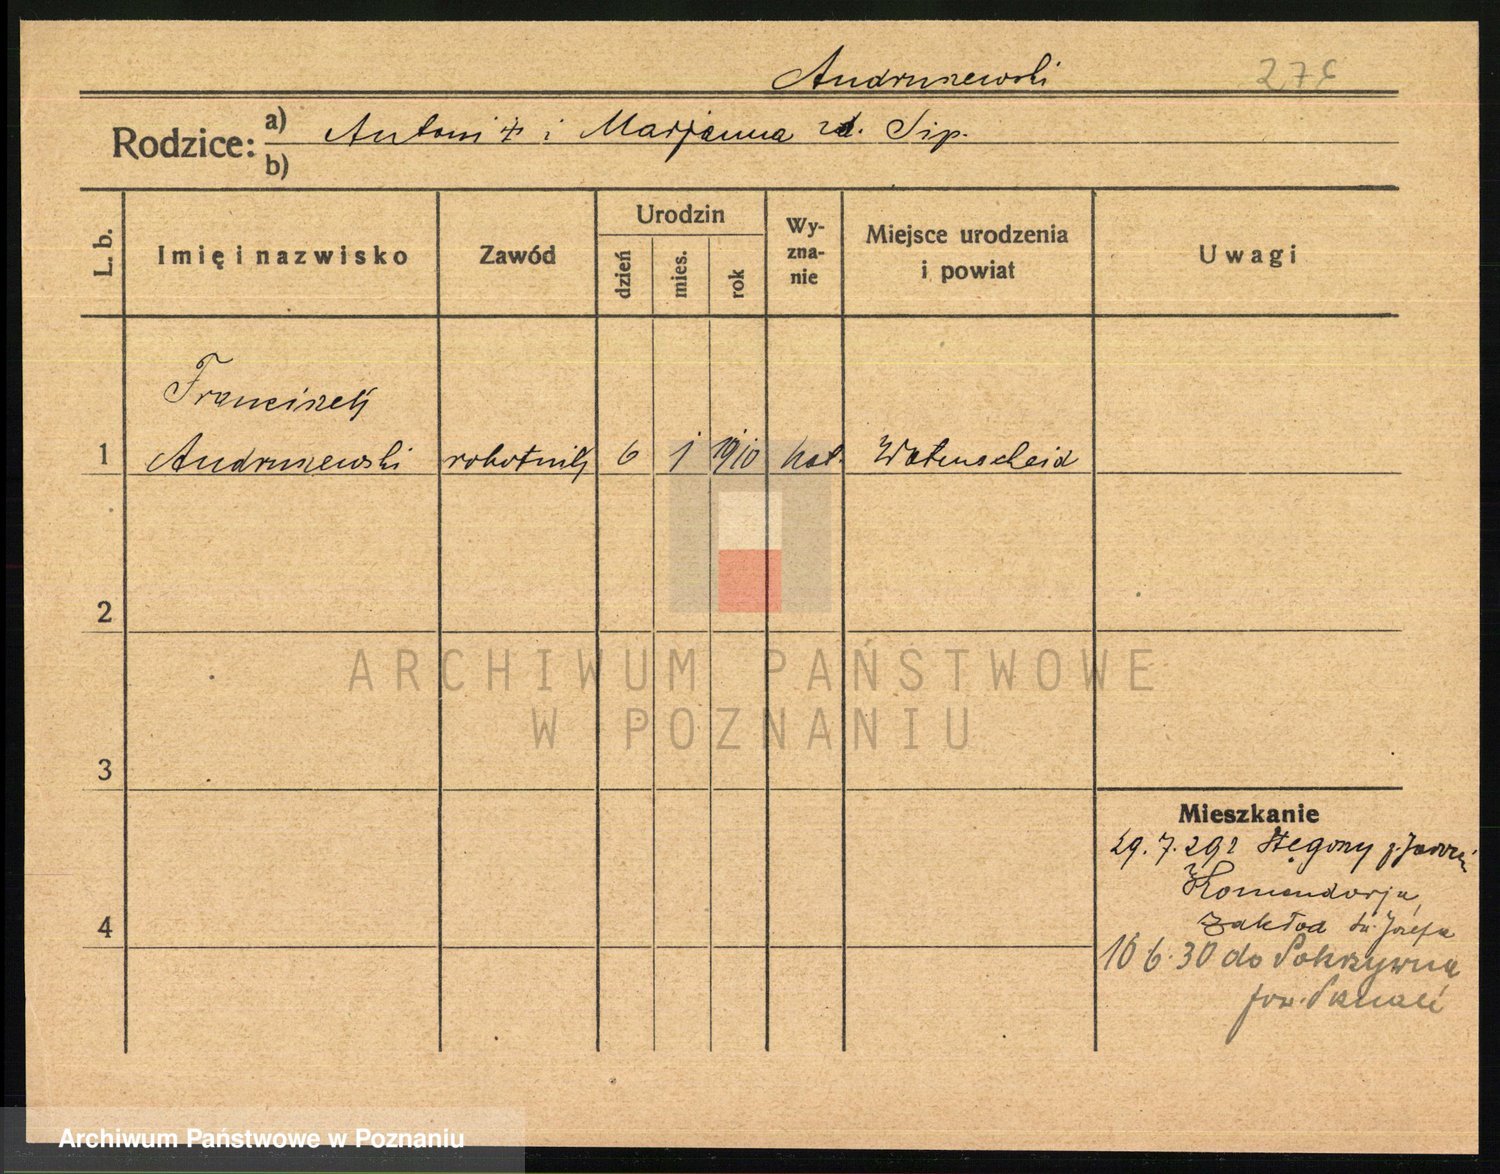 Andruszewski 276
Rodzice: a) Antoni i Marjanna zd. Sip.
b)
L. b.
Imię i nazwisko
Zawód
Urodzin
dzień
mies.
rok
Wy-
zna-
nie
Miejsce urodzenia
i powiat
Uwagi
Franciszek
1 Andruszewski robotnik 6 1 1910 kat. Watenscheid
2
ARCHIWUM PAŃSTWOWE
W POZNANIU
3
Mieszkanie
29.7.29 z
Komandorja,
4 zakład św. Józefa
16 6.30 do Pokrzywna
pow. Poznań
Archiwum Państwowe w Poznaniu